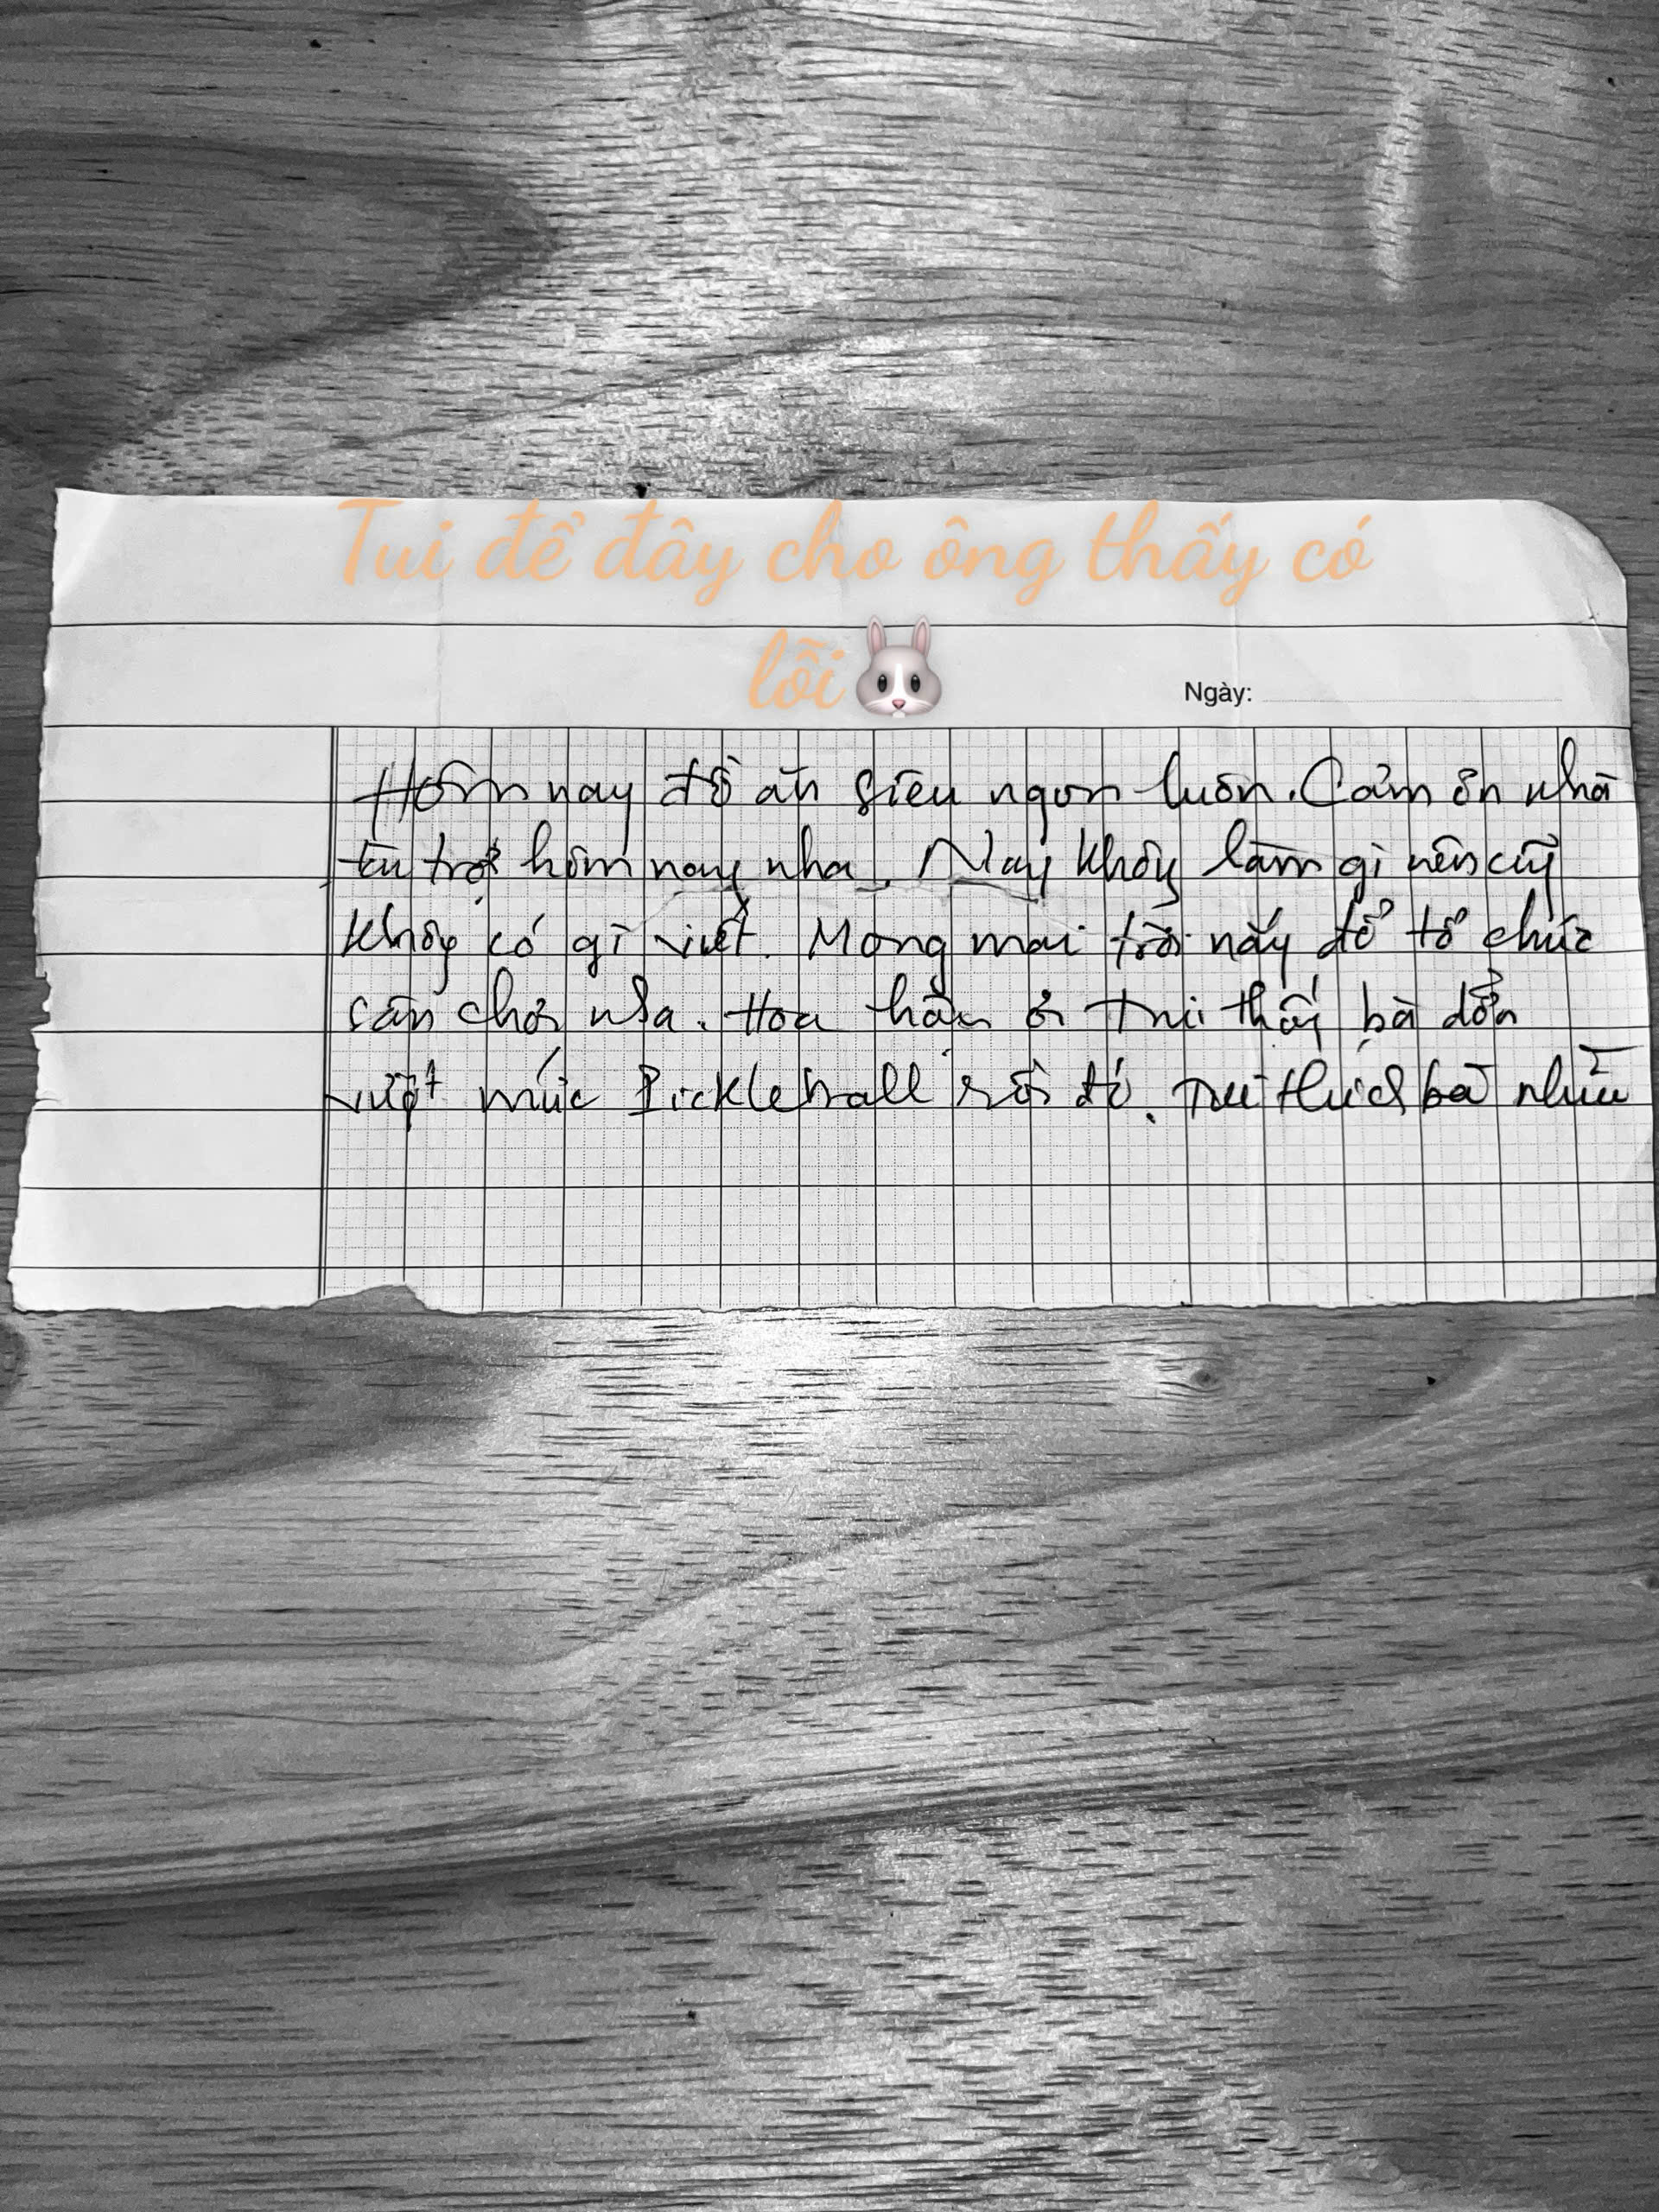 Tui để đây cho ông thấy có
lỗi🐰
Ngày:
Hôm nay đồ ăn siêu ngon luôn. Cảm ơn nhà
tài trợ hôm nay nha. Nay không làm gì nên cũng
không có gì viết. Mong mai trời nắng để tổ chức
sân chơi nữa. Hoa hậu ơi tui thấy bà dồn
vượt mức Pickleball rồi đó. Tui thích bà nhiều